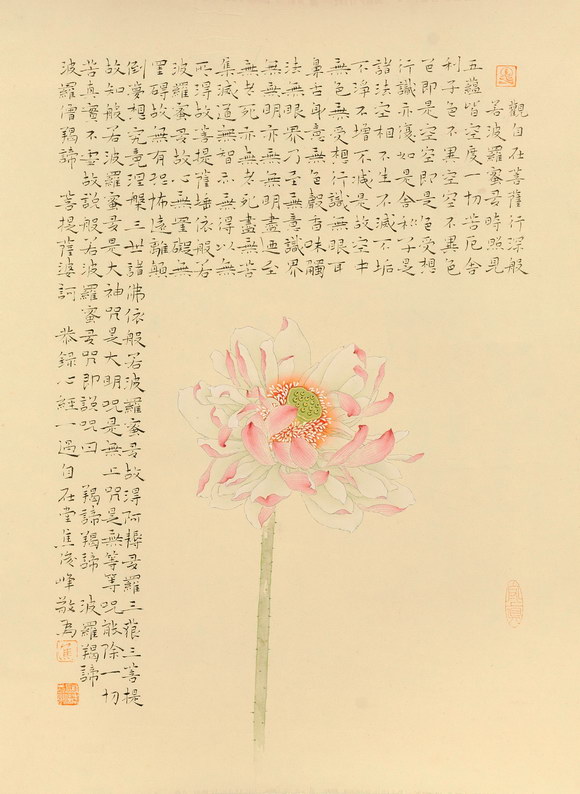 觀自在菩薩行深般
若波羅蜜多時照見
五蘊皆空度一切苦厄舍
利子色不異空空不異色
色即是空空即是色受想
行識亦復如是舍利子是
諸法空相不生不滅不垢
不淨不增不減是故空中
無色無受想行識無眼耳
鼻舌身意無色聲香味觸
法無眼界乃至無意識界
無無明亦無無明盡迺至
無老死亦無老死盡無苦
集滅道無智亦無得以無
所得故菩提薩埵依般若
波羅蜜多故心無罣礙無
罣礙故無有恐怖遠離顛
倒夢想究竟涅槃三世諸佛依般若波羅蜜多故得阿耨多羅三藐三菩提
故知般若波羅蜜多是大神咒是大明咒是無上咒是無等等咒能除一切
苦真實不虛故說般若波羅蜜多咒即說咒曰 羯諦羯諦 波羅羯諦
波羅僧羯諦 菩提薩婆訶 恭錄心經一過自在堂焦俊峰敬